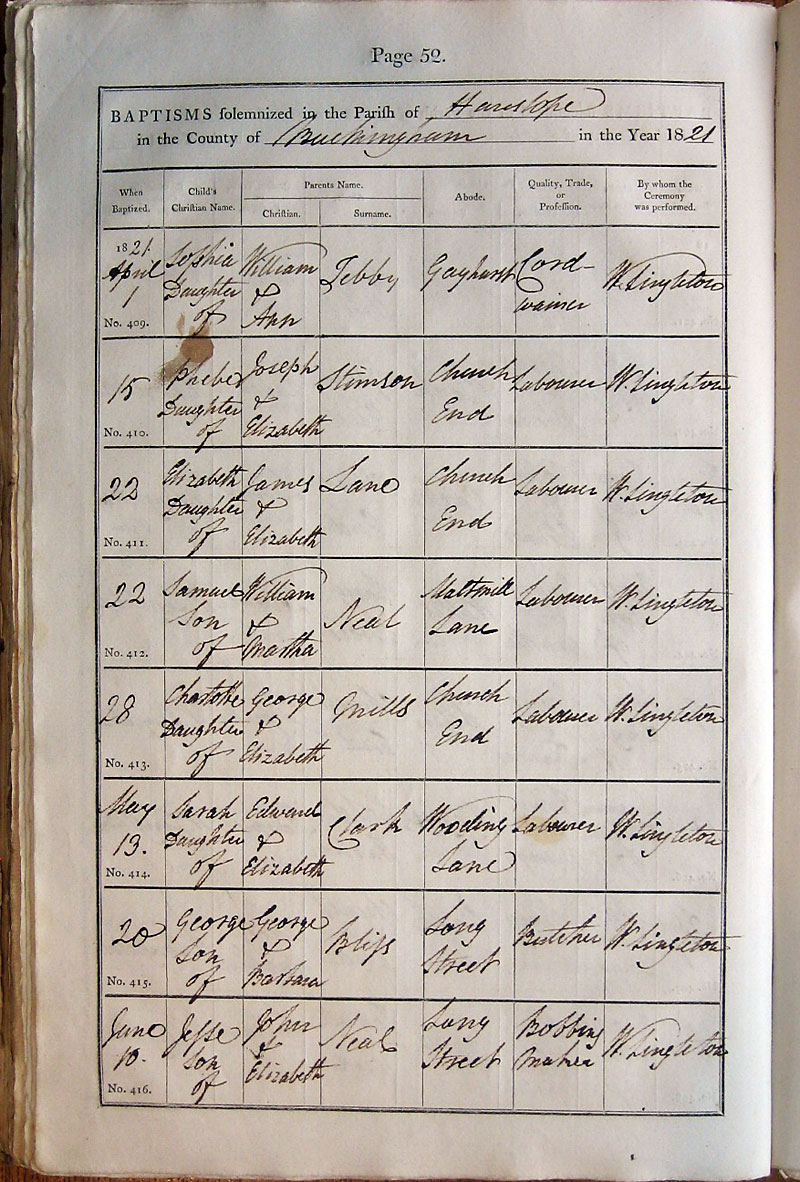 Page 52.
BAPTISMS solemnized in the Parish of Hanslope
in the County of Buckingham in the Year 1821
When Baptized.
Child's Christian Name.
Parents Name.
Christian.
Surname.
Abode.
Quality, Trade, or Profession.
By whom the Ceremony was performed.
1821.
April
1
No. 409.
Sophia
Daughter
of
William
&
Ann
Tebby
Gayhurst
Cord-
wainer
W. Singleton
15
No. 410.
Phebe
Daughter
of
Joseph
&
Elizabeth
Stimson
Church
End
Labourer
W. Singleton
22
No. 411.
Elizabeth
Daughter
of
James
&
Elizabeth
Lane
Church
End
Labourer
W. Singleton
22
No. 412.
Samuel
Son
of
William
&
Martha
Neal
Maltmill
Lane
Labourer
W. Singleton
28
No. 413.
Charlotte
Daughter
of
George
&
Elizabeth
Mills
Church
End
Labourer
W. Singleton
May
13.
No. 414.
Sarah
Daughter
of
Edward
&
Elizabeth
Clark
Wooding
Lane
Labourer
W. Singleton
20
No. 415.
George
Son
of
George
&
Barbara
Bliss
Long
Street
Butcher
W. Singleton
June
10.
No. 416.
Jesse
Son
of
John
&
Elizabeth
Neal
Long
Street
Bobbing
Maker
W. Singleton